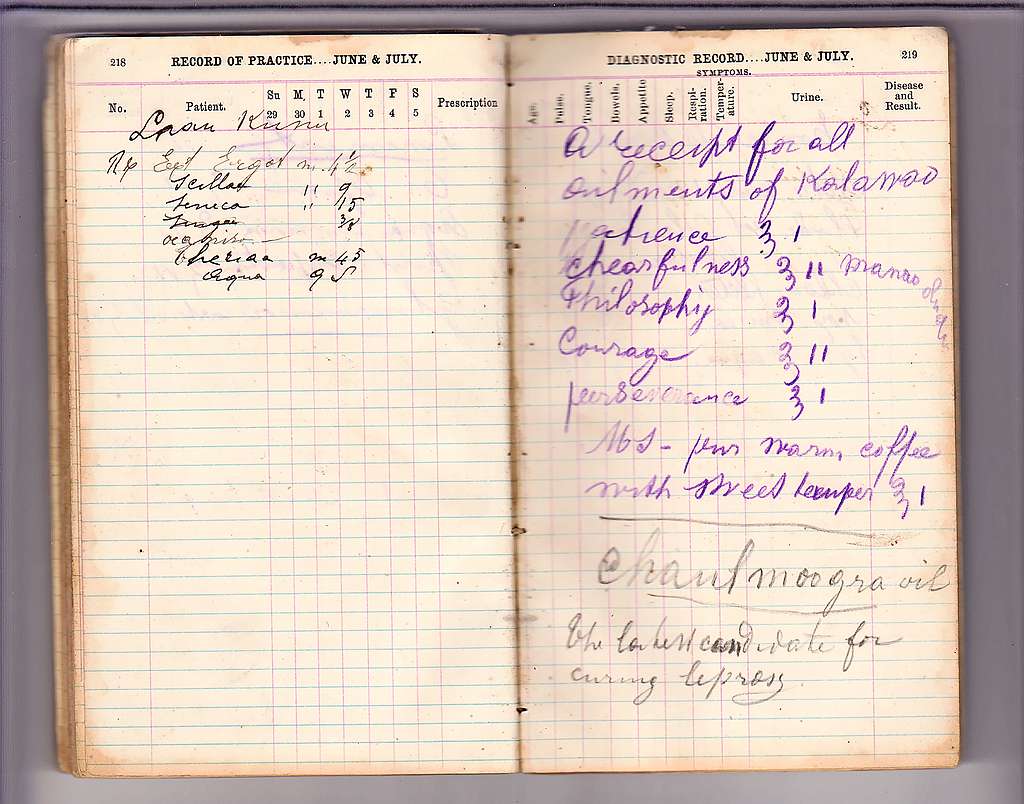 218 RECORD OF PRACTICE....JUNE & JULY.
No. Patient. Su 29 M, 30 T 1 W 2 T 3 F 4 S 5 Prescription
Kunu
Ergot m. 4 ½
Scillae " 9
Seneca " 15
3/8
Theriaa m 45
Aqua
DIAGNOSTIC RECORD....JUNE & JULY. 219
SYMPTOMS.
Age. Pulse. Tongue. Bowels. Appetite Sleep. Respiration. Temperature. Urine. Disease and Result.
A receipt for all
ailments of Kalawao
patience ʒ 1
chearfulness ʒ 11
Philosophy ʒ 1
Courage ʒ 11
perseverance ʒ 1
warm coffee
with sweet temper ʒ 1
Chaulmoogra oil
the latest candidate for
curing leprosy